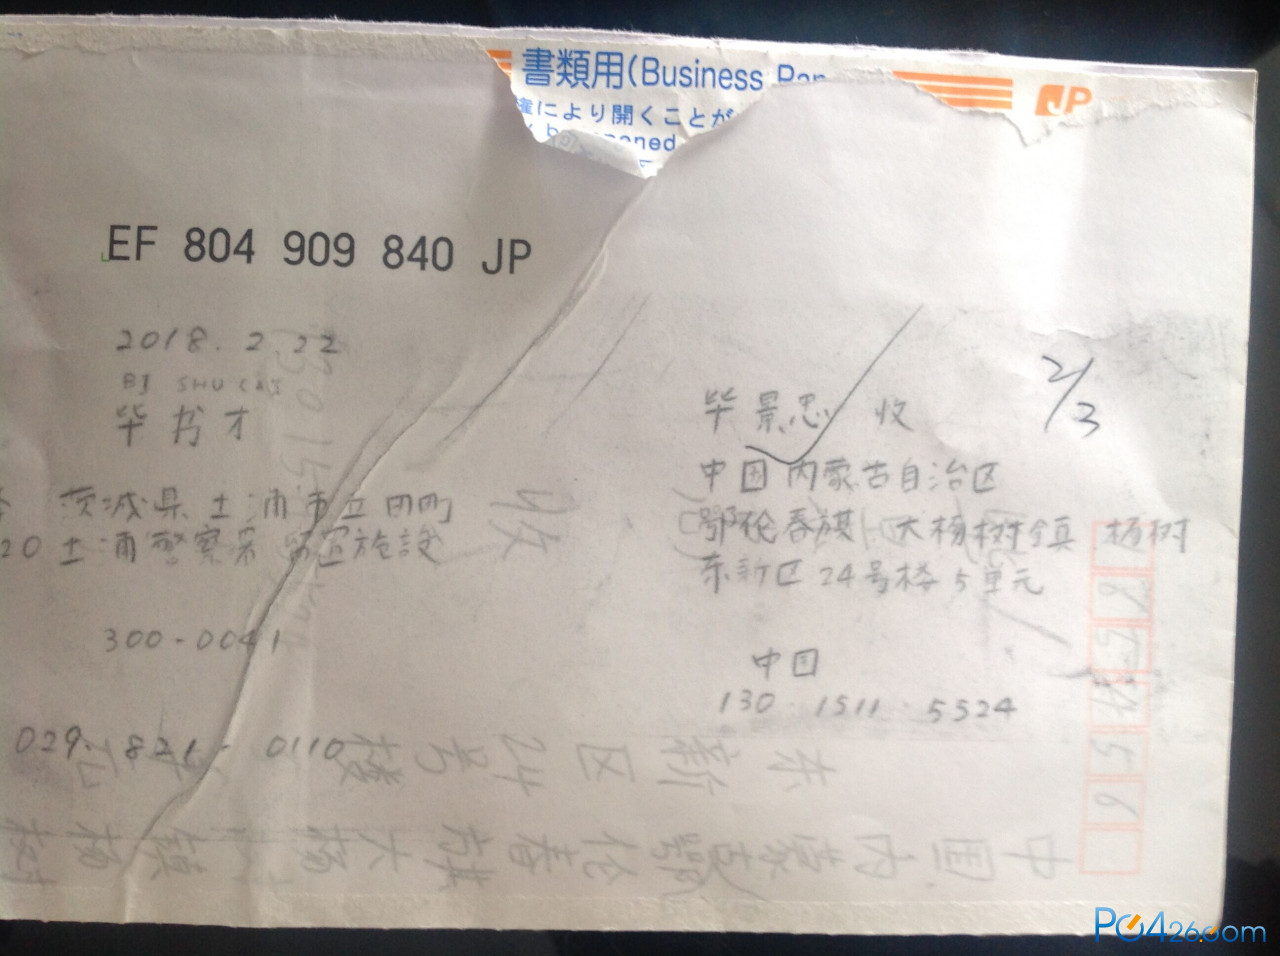 書類用(Business Pap
により開くことが
JP
EF 804 909 840 JP
2018. 2 22
BI SHU CAI
毕书才
茨城県土浦市立田町
20土浦警察署留置施設
300-0041
029-821-0110
2/3
毕景思 收
中国内蒙古自治区
鄂伦春旗 大杨树镇 杨树
东新区24号楼5单元
中国
130·1511·5524
东新区24号楼
中国内蒙古鄂伦春旗大杨树镇杨树
PC426.com